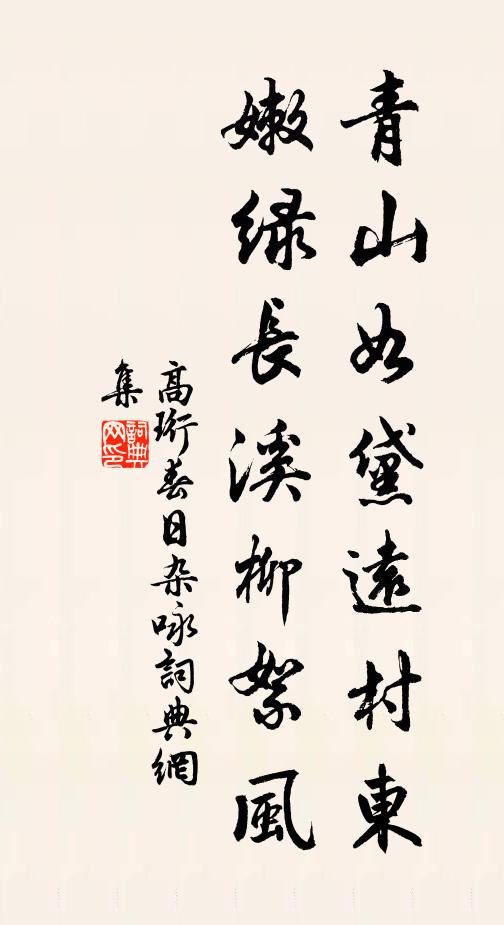 青山如黛遠村東
嫩緑長溪柳絮風
高珩春日杂咏詞典網
集
詞典
网印